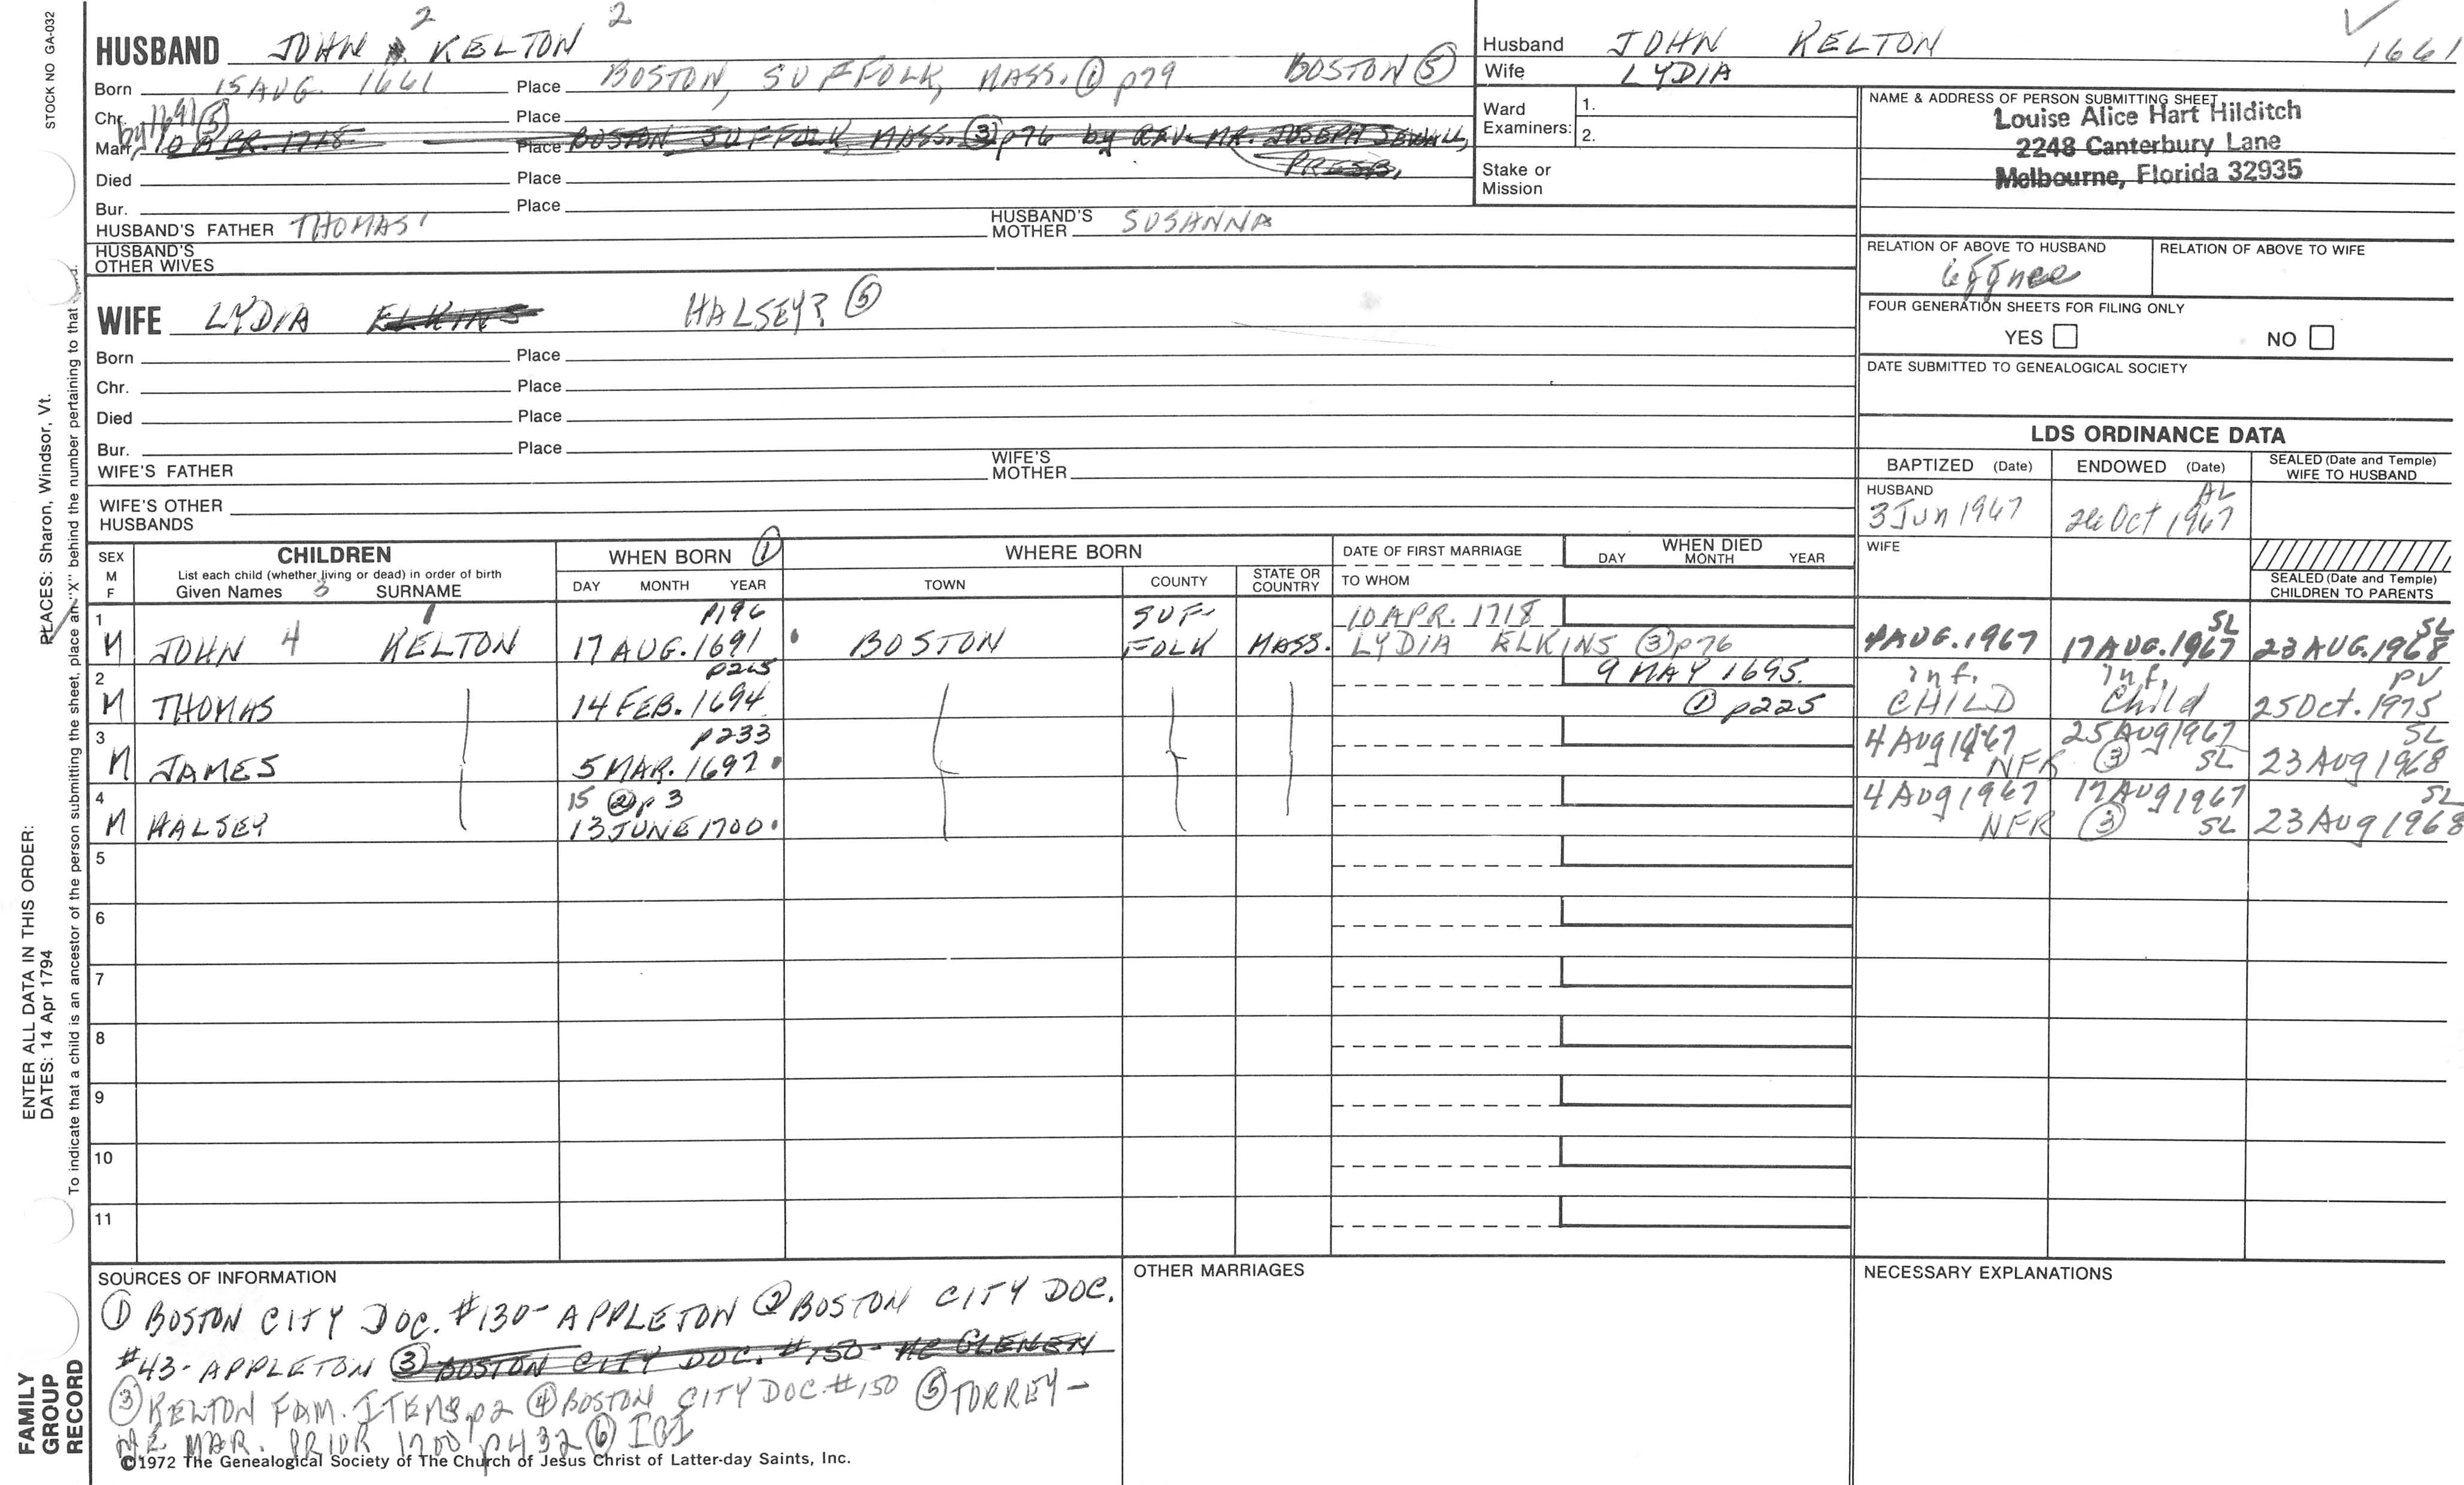 STOCK NO GA-032
2 2
HUSBAND JOHN KELTON
Born 15 AUG. 1661 Place BOSTON, SUFFOLK, MASS. ① p79 BOSTON ⑤
Chr. Place
by 1691 ⑤
Marr. 10 APR. 1718 Place BOSTON SUFFOLK, MASS. ③ p76 by REV. MR. JOSEPH SEWALL,
PRESB.
Died Place
Bur. Place
HUSBAND'S FATHER THOMAS 1 HUSBAND'S MOTHER SUSANNA
HUSBAND'S
OTHER WIVES
WIFE LYDIA ELKINS HALSEY? ⑤
Born Place
Chr. Place
Died Place
Bur. Place
WIFE'S FATHER WIFE'S MOTHER
WIFE'S OTHER
HUSBANDS
Husband JOHN KELTON 1661
Wife LYDIA
Ward
Examiners:
1.
2.
Stake or
Mission
NAME & ADDRESS OF PERSON SUBMITTING SHEET
Louise Alice Hart Hilditch
2248 Canterbury Lane
Melbourne, Florida 32935
RELATION OF ABOVE TO HUSBAND RELATION OF ABOVE TO WIFE
FOUR GENERATION SHEETS FOR FILING ONLY
YES NO
DATE SUBMITTED TO GENEALOGICAL SOCIETY
LDS ORDINANCE DATA
BAPTIZED (Date) ENDOWED (Date) SEALED (Date and Temple)
WIFE TO HUSBAND
HUSBAND
AL
3 Jun 1967 26 Oct 1967
WIFE
SEALED (Date and Temple)
CHILDREN TO PARENTS
SEX
M
F
CHILDREN
List each child (whether living or dead) in order of birth
Given Names 3 SURNAME
WHEN BORN ①
DAY MONTH YEAR
WHERE BORN
TOWN COUNTY STATE OR COUNTRY
DATE OF FIRST MARRIAGE
TO WHOM
WHEN DIED
DAY MONTH YEAR
1 p196 SUF- 10 APR. 1718 SL SL
M JOHN 4 KELTON 17 AUG. 1691 BOSTON FOLK MASS. LYDIA ELKINS ③ p76 4 AUG. 1967 17 AUG. 1967 23 AUG. 1968
2 p265 9 MAY 1695. inf. inf. PV
M THOMAS 14 FEB. 1694 ① p225 CHILD Child 25 Oct. 1975
3 p233 4 Aug 1967 25 Aug 1967 SL
M JAMES 5 MAR. 1697 NFR ③ SL 23 Aug 1968
4 15 ② p 3 4 Aug 1967 17 Aug 1967 SL
M HALSEY 13 JUNE 1700 NFR ③ SL 23 Aug 1968
5
6
7
8
9
10
11
SOURCES OF INFORMATION
① BOSTON CITY DOC. #130 - APPLETON ② BOSTON CITY DOC.
#43 - APPLETON ③ BOSTON CITY DOC. #150 - MC GLENEN
③ KELTON FAM. ITEMS p2 ④ BOSTON CITY DOC. #150 ⑤ TORREY -
N.E. MAR. PRIOR 1700 p432 ⑥ IGI
OTHER MARRIAGES
NECESSARY EXPLANATIONS
©1972 The Genealogical Society of The Church of Jesus Christ of Latter-day Saints, Inc.
FAMILY
GROUP
RECORD
ENTER ALL DATA IN THIS ORDER:
DATES: 14 Apr 1794
PLACES: Sharon, Windsor, Vt.
To indicate that a child is an ancestor of the person submitting the sheet, place an "X" behind the number pertaining to that